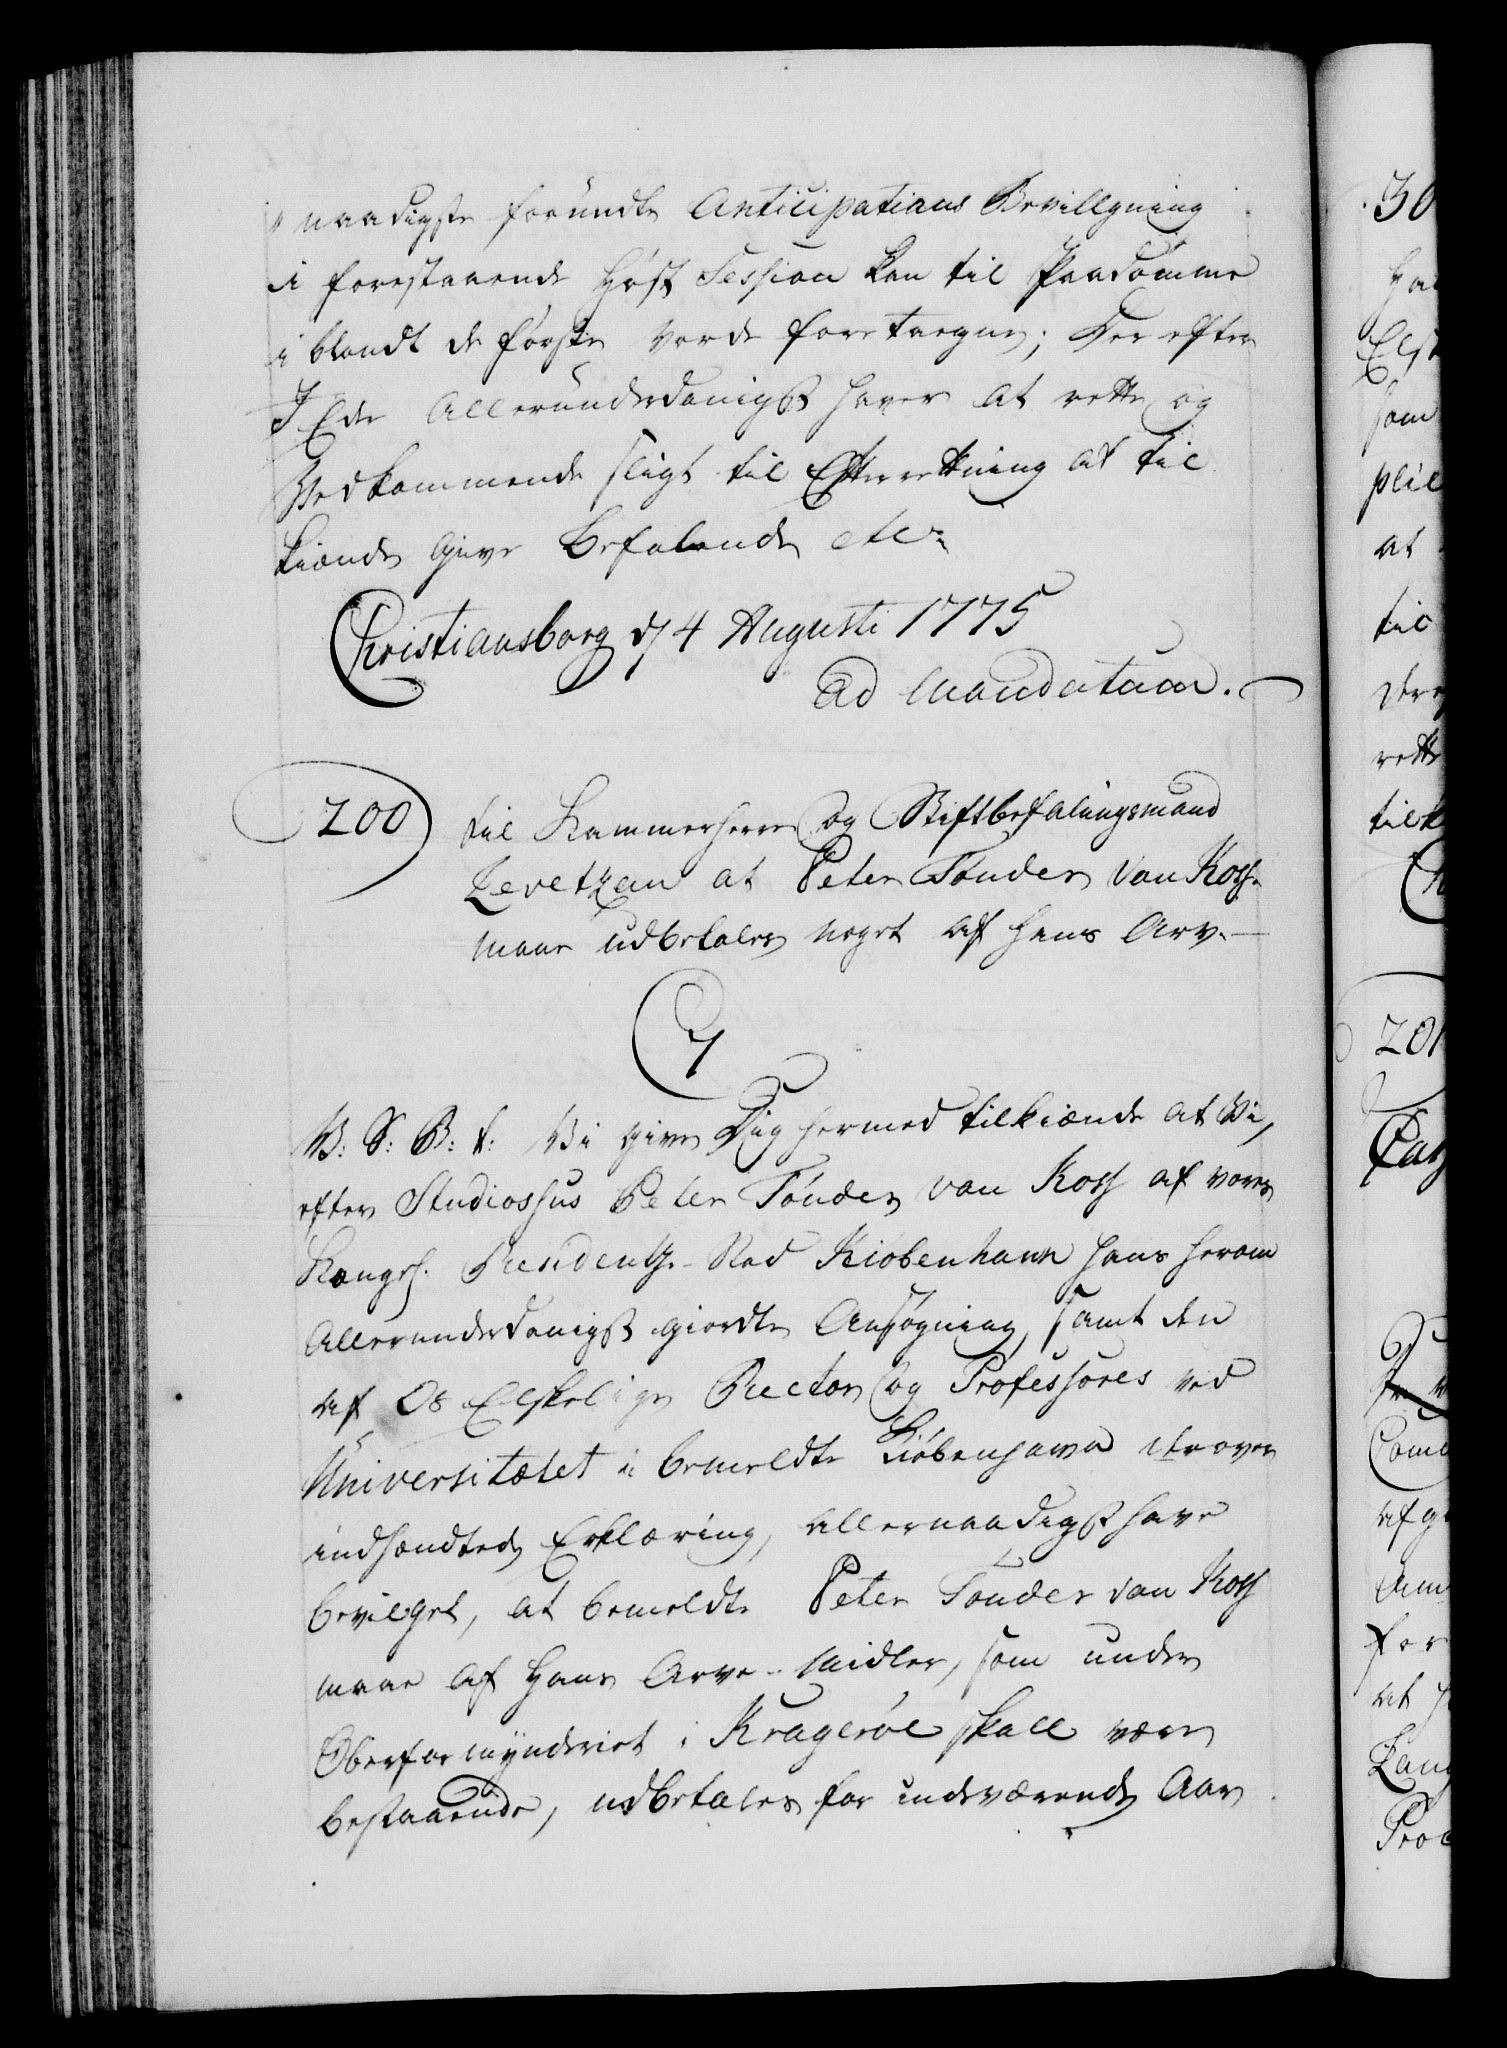 naadigste forundte Anticipations Bevillgning
i forestaaende Höst Session kan til Paadömme
i blandt de förste vorde foretaegne; Der efter
I Eder Allerunderdanigst haver at rette og
Vedkommende sligt til Efterretning at til
kiænde give Befalende etc:
Christiansborg d 4 Augusti 1775
Ad Mandatum.
200
til Kammerherre og Stiftbefalingsmand
Levetzau at Peter Tönder van Koss
maae udbetales noget af hans Arv.
C 7
V: S: G: t: Vi give Dig hermed tilkiænde at Vi,
efter Studiossus Peter Tönder van Koss af vores
Kongel. Residentz-Stad Kiöbenhavn hans herom
Allerunderdanigst giordte Ansögning, samt den
af Os Elskelige Rector og Professores ved
Universitætet i bemeldte Kiöbenhavn derover
indhændtede Erklæring, allernaadigst have
bevilget, at bemeldte Peter Tönder van Koss
maae af Hans Arve-Midler, som under
Oberformynderiet i Krageröe skall være
bestaaende, udbetales for indeværende Aar
30
201